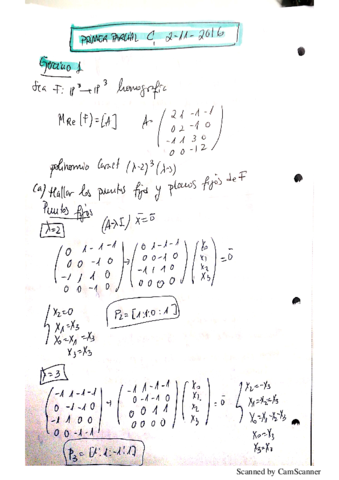 PRIMER PARCIAL C, 2-11-2016
Ejercicio 1
Sea F: P³→P³ homografía
M Re (F) = [A]   A =
( 2 1 -1 -1
0 2 -1 0
-1 1 3 0
0 0 -1 2 )
polinomio caract (λ-2)³(λ-3)
(a) Hallar los puntos fijos y planos fijos de F
Puntos fijos
(A-λI) x̄ = 0̄
λ=2
( 0 1 -1 -1
0 0 -1 0
-1 1 1 0
0 0 -1 0 ) → ( 0 1 -1 -1
0 0 -1 0
-1 1 1 0
0 0 0 0 ) ( x₀
x₁
x₂
x₃ ) = 0̄
{ x₂=0
x₁=x₃
x₀=x₁=x₃
x₃=x₃
P₂=[1:1:0:1]
λ=3
( -1 1 -1 -1
0 -1 -1 0
-1 1 0 0
0 0 -1 -1 ) → ( -1 1 -1 -1
0 -1 -1 0
0 0 1 1
0 0 0 0 ) ( x₀
x₁
x₂
x₃ ) = 0̄
{ x₂=-x₃
x₁=x₃
x₀=x₃
x₃=x₃
P₃=[1:1:-1:1]
Scanned by CamScanner